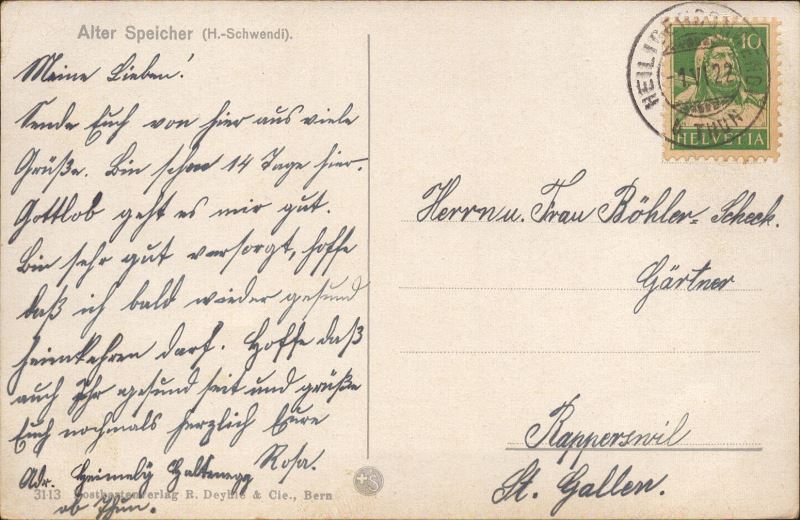 Alter Speicher (H.-Schwendi).
Meine Lieben!
Sende Euch von hier aus viele
Grüße. Bin schon 14 Tage hier.
Gottlob geht es mir gut.
Bin sehr gut versorgt, hoffe
daß ich bald wieder gesund
heimkehren darf. Hoffe daß
auch Ihr gesund seit und grüße
Euch nochmals herzlich Eure
Rosa.
Adr. Heimely Haltenegg
ob Thun.
3113 Postkartenverlag R. Deyhle & Cie., Bern
+S
10
HELVETIA
-1.VI.22
THUN
Herrn u. Frau Böhler-Scheck.
Gärtner
Rapperswil
St. Gallen.